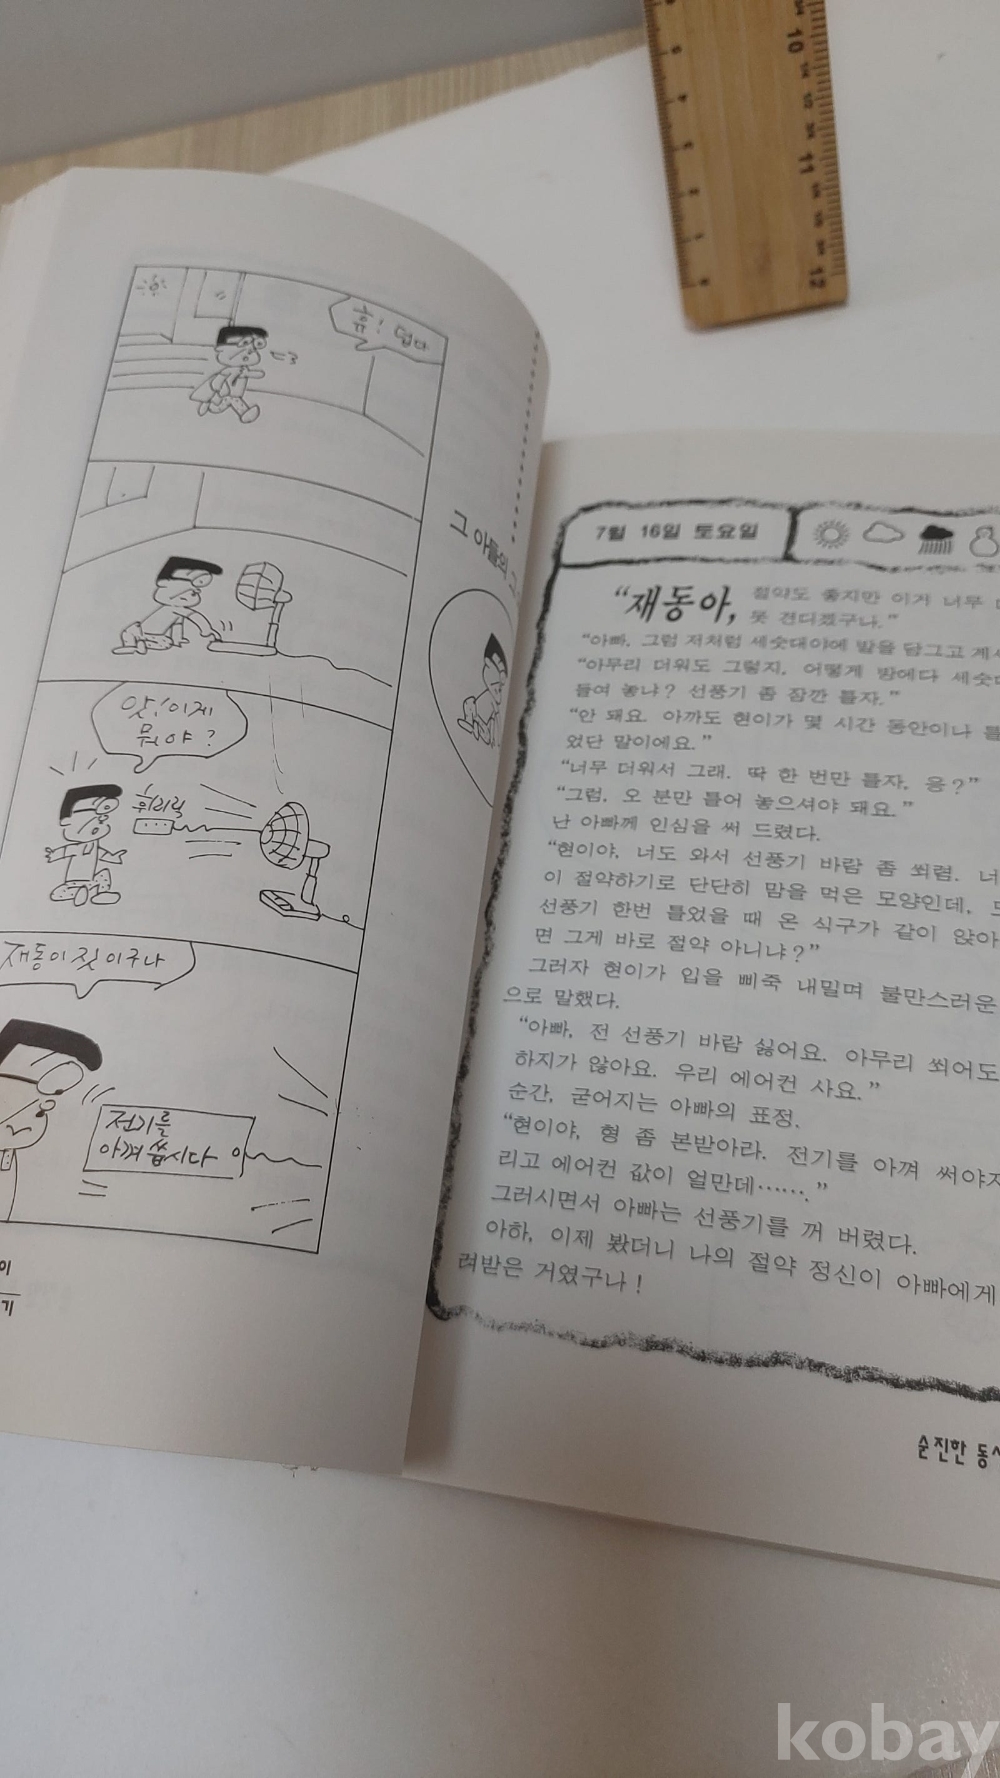 휴! 덥다
앗! 이게
뭐야?
휘리릭
재동이 짓이구나
전기를
아껴 씁시다
이
기
그 아들의 그
7월 16일 토요일
“재동아, 절약도 좋지만 이거 너무
못 견디겠구나.”
“아빠, 그럼 저처럼 세숫대야에 발을 담그고
“아무리 더워도 그렇지, 어떻게 방에다
들여 놓냐? 선풍기 좀 잠깐 틀자.”
“안 돼요. 아까도 현이가 몇 시간 동안이나
었단 말이에요.”
“너무 더워서 그래. 딱 한 번만 틀자, 응?”
“그럼, 오 분만 틀어 놓으셔야 돼요.”
난 아빠께 인심을 써 드렸다.
“현이야, 너도 와서 선풍기 바람 좀 쐬렴.
이 절약하기로 단단히 맘을 먹은 모양인데,
선풍기 한번 틀었을 때 온 식구가 같이
면 그게 바로 절약 아니냐?”
그러자 현이가 입을 삐죽 내밀며 불만스러운
으로 말했다.
“아빠, 전 선풍기 바람 싫어요. 아무리 쐬어도
하지가 않아요. 우리 에어컨 사요.”
순간, 굳어지는 아빠의 표정.
“현이야, 형 좀 본받아라. 전기를 아껴
리고 에어컨 값이 얼만데…….”
그러시면서 아빠는 선풍기를 꺼 버렸다.
아하, 이제 봤더니 나의 절약 정신이 아빠에게
려받은 거였구나!
순진한
5
4
3
2
1
10
11
12
kobay